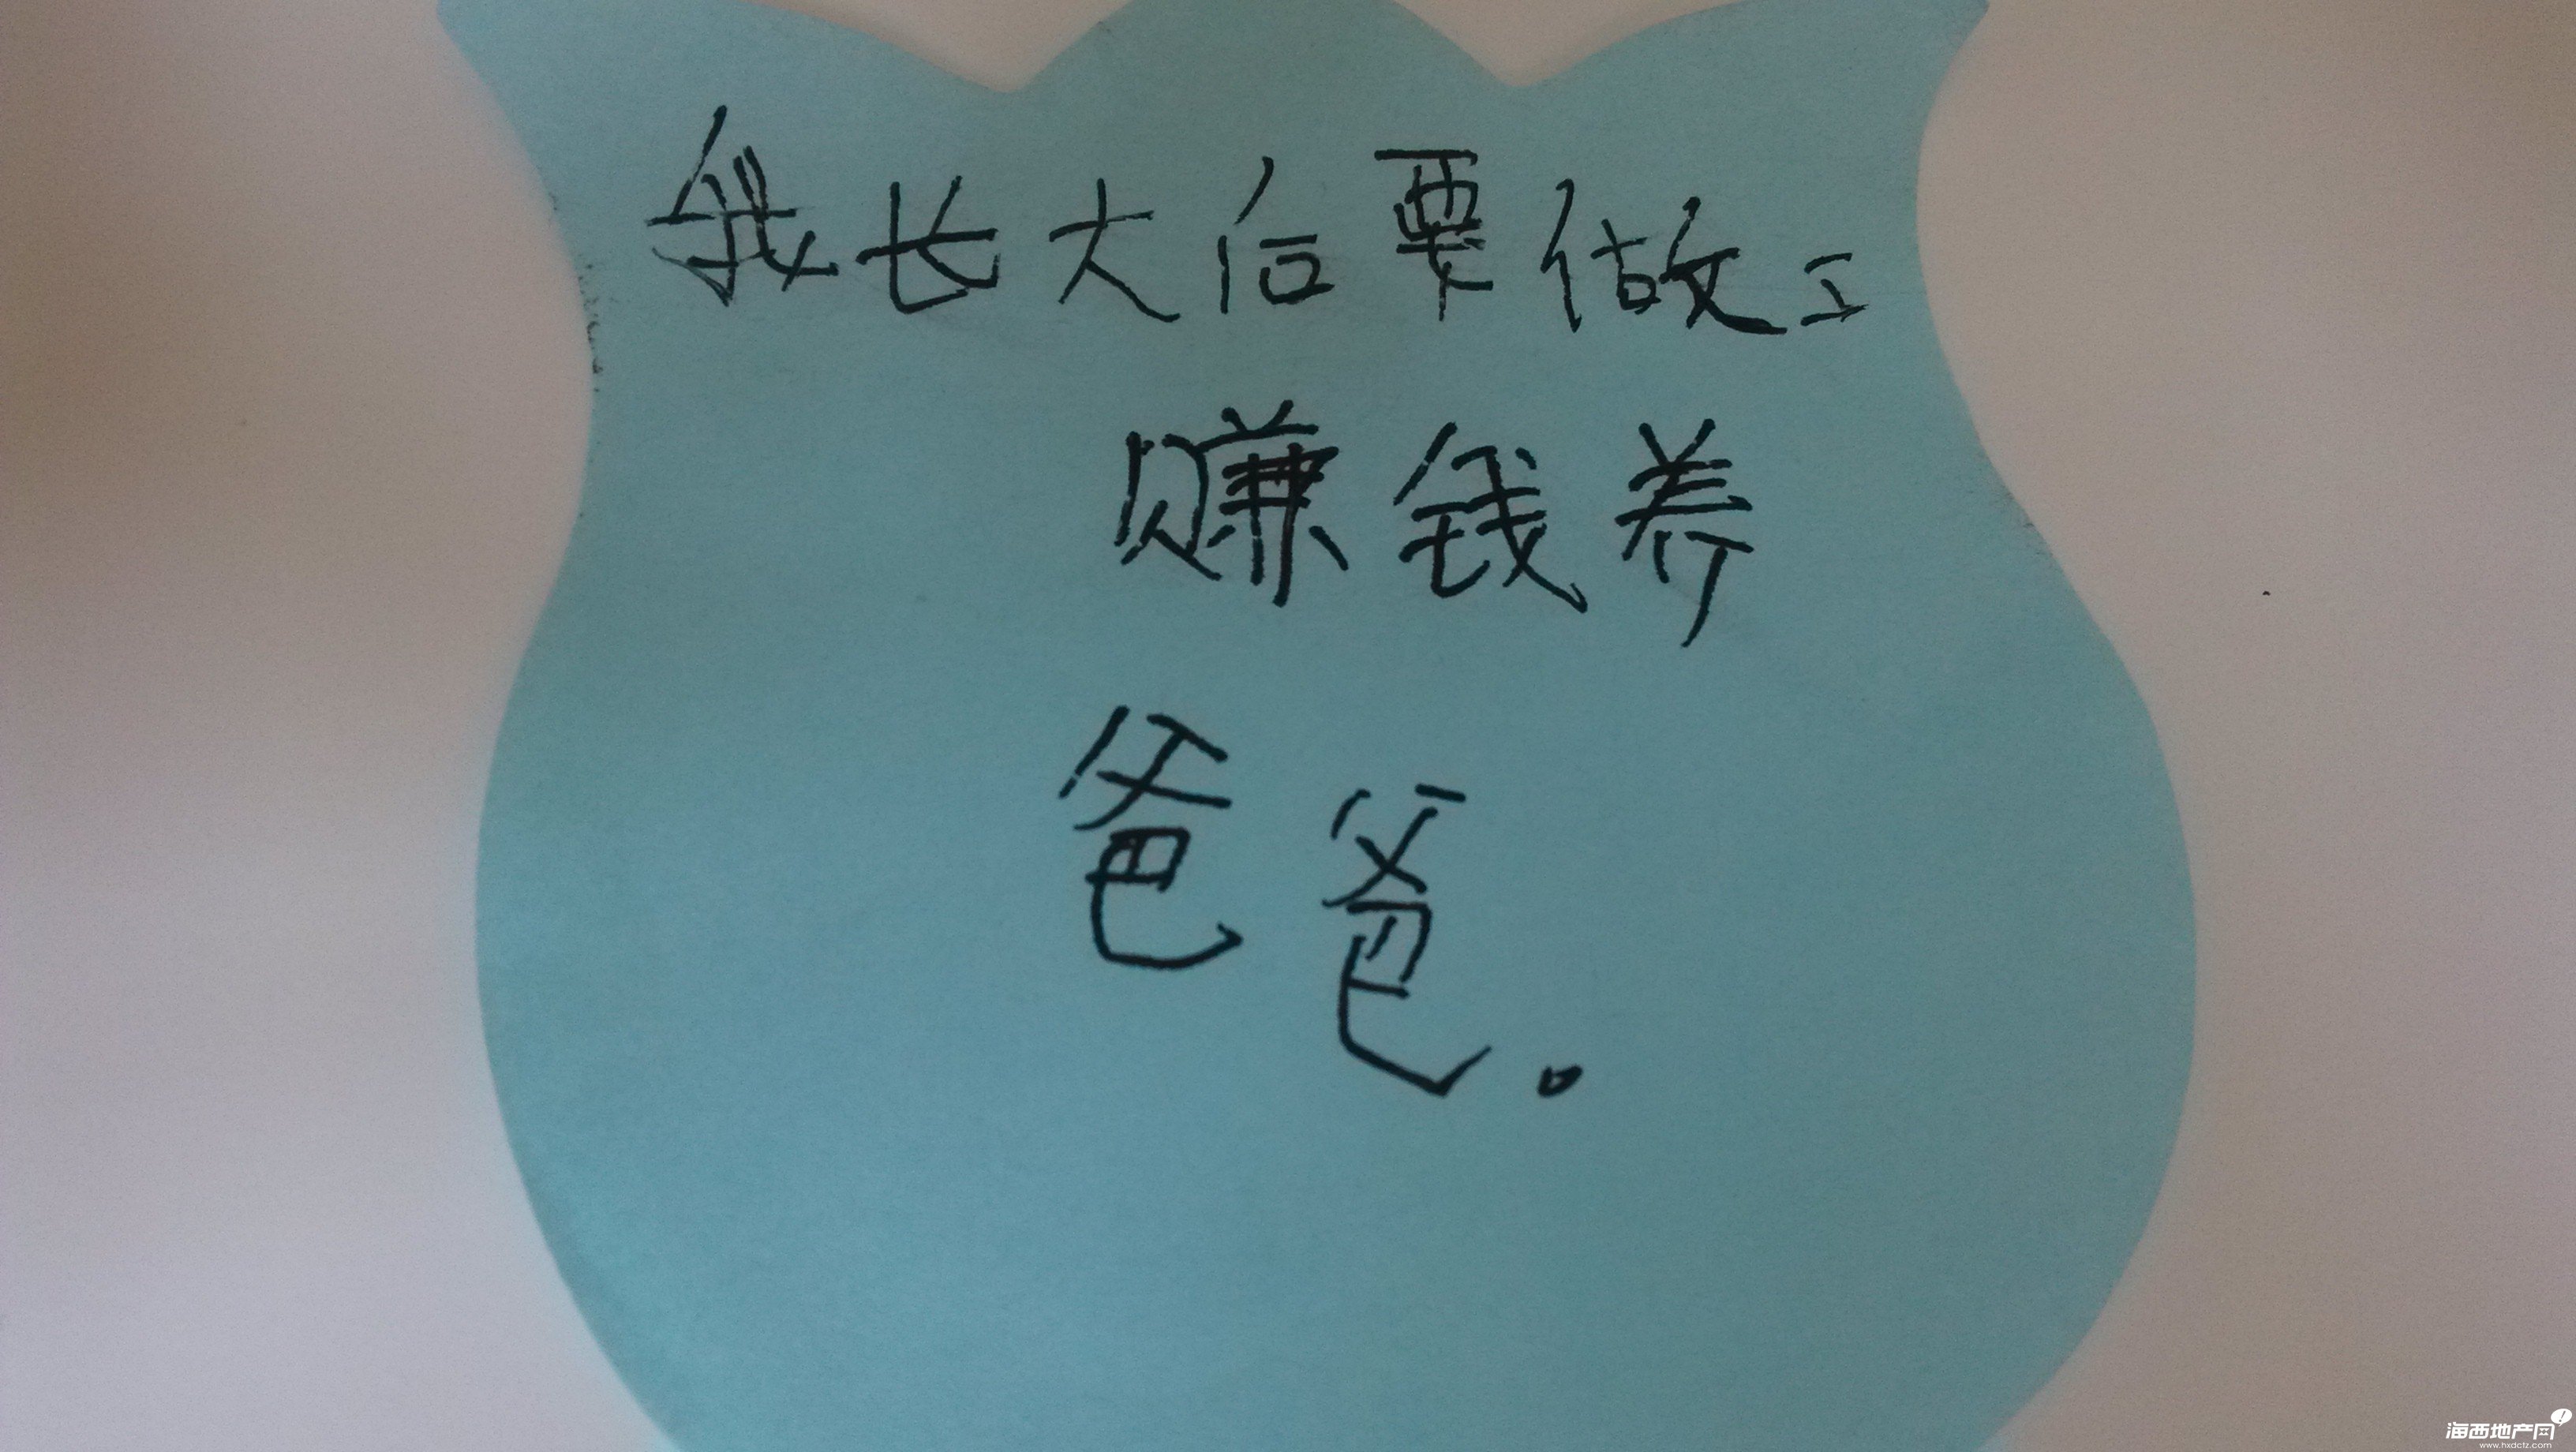 我长大后要做工
赚钱养
爸爸。
海西地产网
www.hxdctz.com